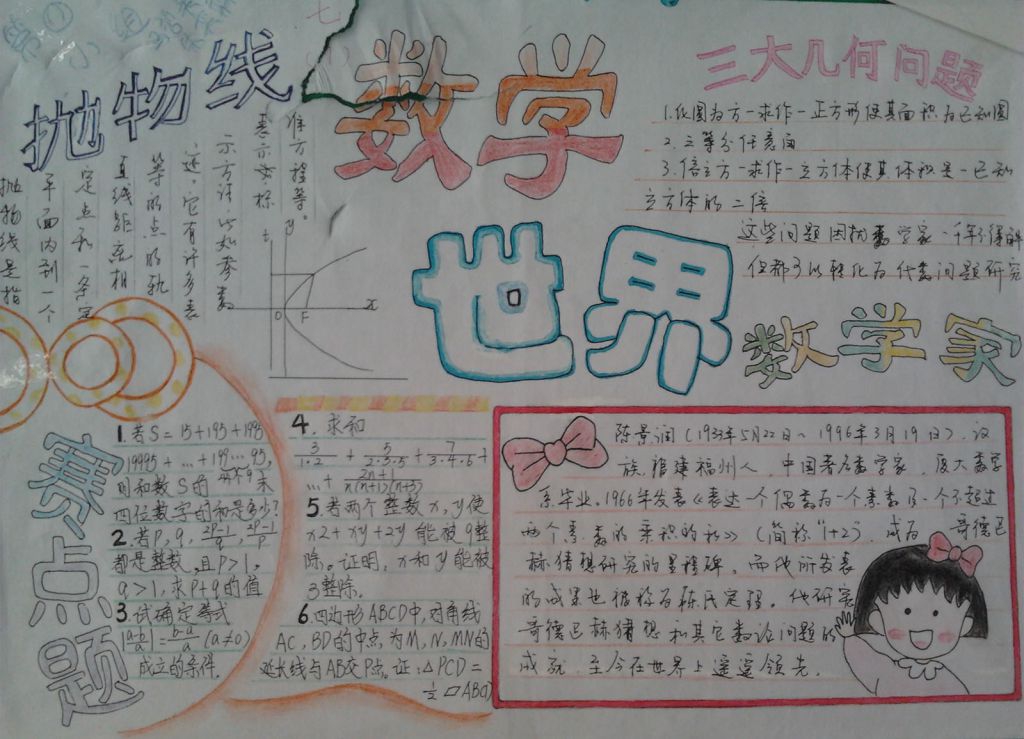 抛物线
数学
世界
抛物线是指
平面内到一个
定点和一条定
直线距离相
等的点的轨
迹，它有许多表
示方法，比如参数
表示，坐标
准方程等。
y
x
O
F
三大几何问题
1.化圆为方-求作-正方形使其面积为已知圆
2.三等分任意角
3.倍立方-求作-立方体使其体积是-已知
立方体的二倍
这些问题困扰数学家一千多
但都可以转化为代数问题研究
数学家
陈景润（1933年5月22日~1996年3月19日）.汉
族.福建福州人，中国著名数学家，厦大数学
系毕业。1966年发表《表达一个偶数为一个素数及一个不超过
两个素数的乘积的和》（简称"1+2）.成为 哥德巴
赫猜想研究的里程碑。而他所发表
的成果也被称为陈氏定理。他研究
哥德巴赫猜想和其它数论问题的
成就，至今在世界上遥遥领先。
赛点题
1.若S=15+195+1995
19995+…+199…95,
则和数S的末
四位数字的和是多少？
2.若P,q,2P-1/q,2q-1/P
都是整数,且P>1,
q>1,求P+q的值
3.试确定等式
|a-b/a|=b-a/a(a≠0)
成立的条件.
4.求和
3/1·2 + 5/2·3·5 + 7/3·4·6 +
…+ 2n+1/n(n+1)(n+3)
5.若两个整数x,y使
x2+xy+2y能被9整
除。证明，x和y能被
3整除.
6.四边形ABCD中,对角线
AC,BD的中点为M,N,MN的
延长线与AB交P点。证:△PCD=
1/2▱ABCD